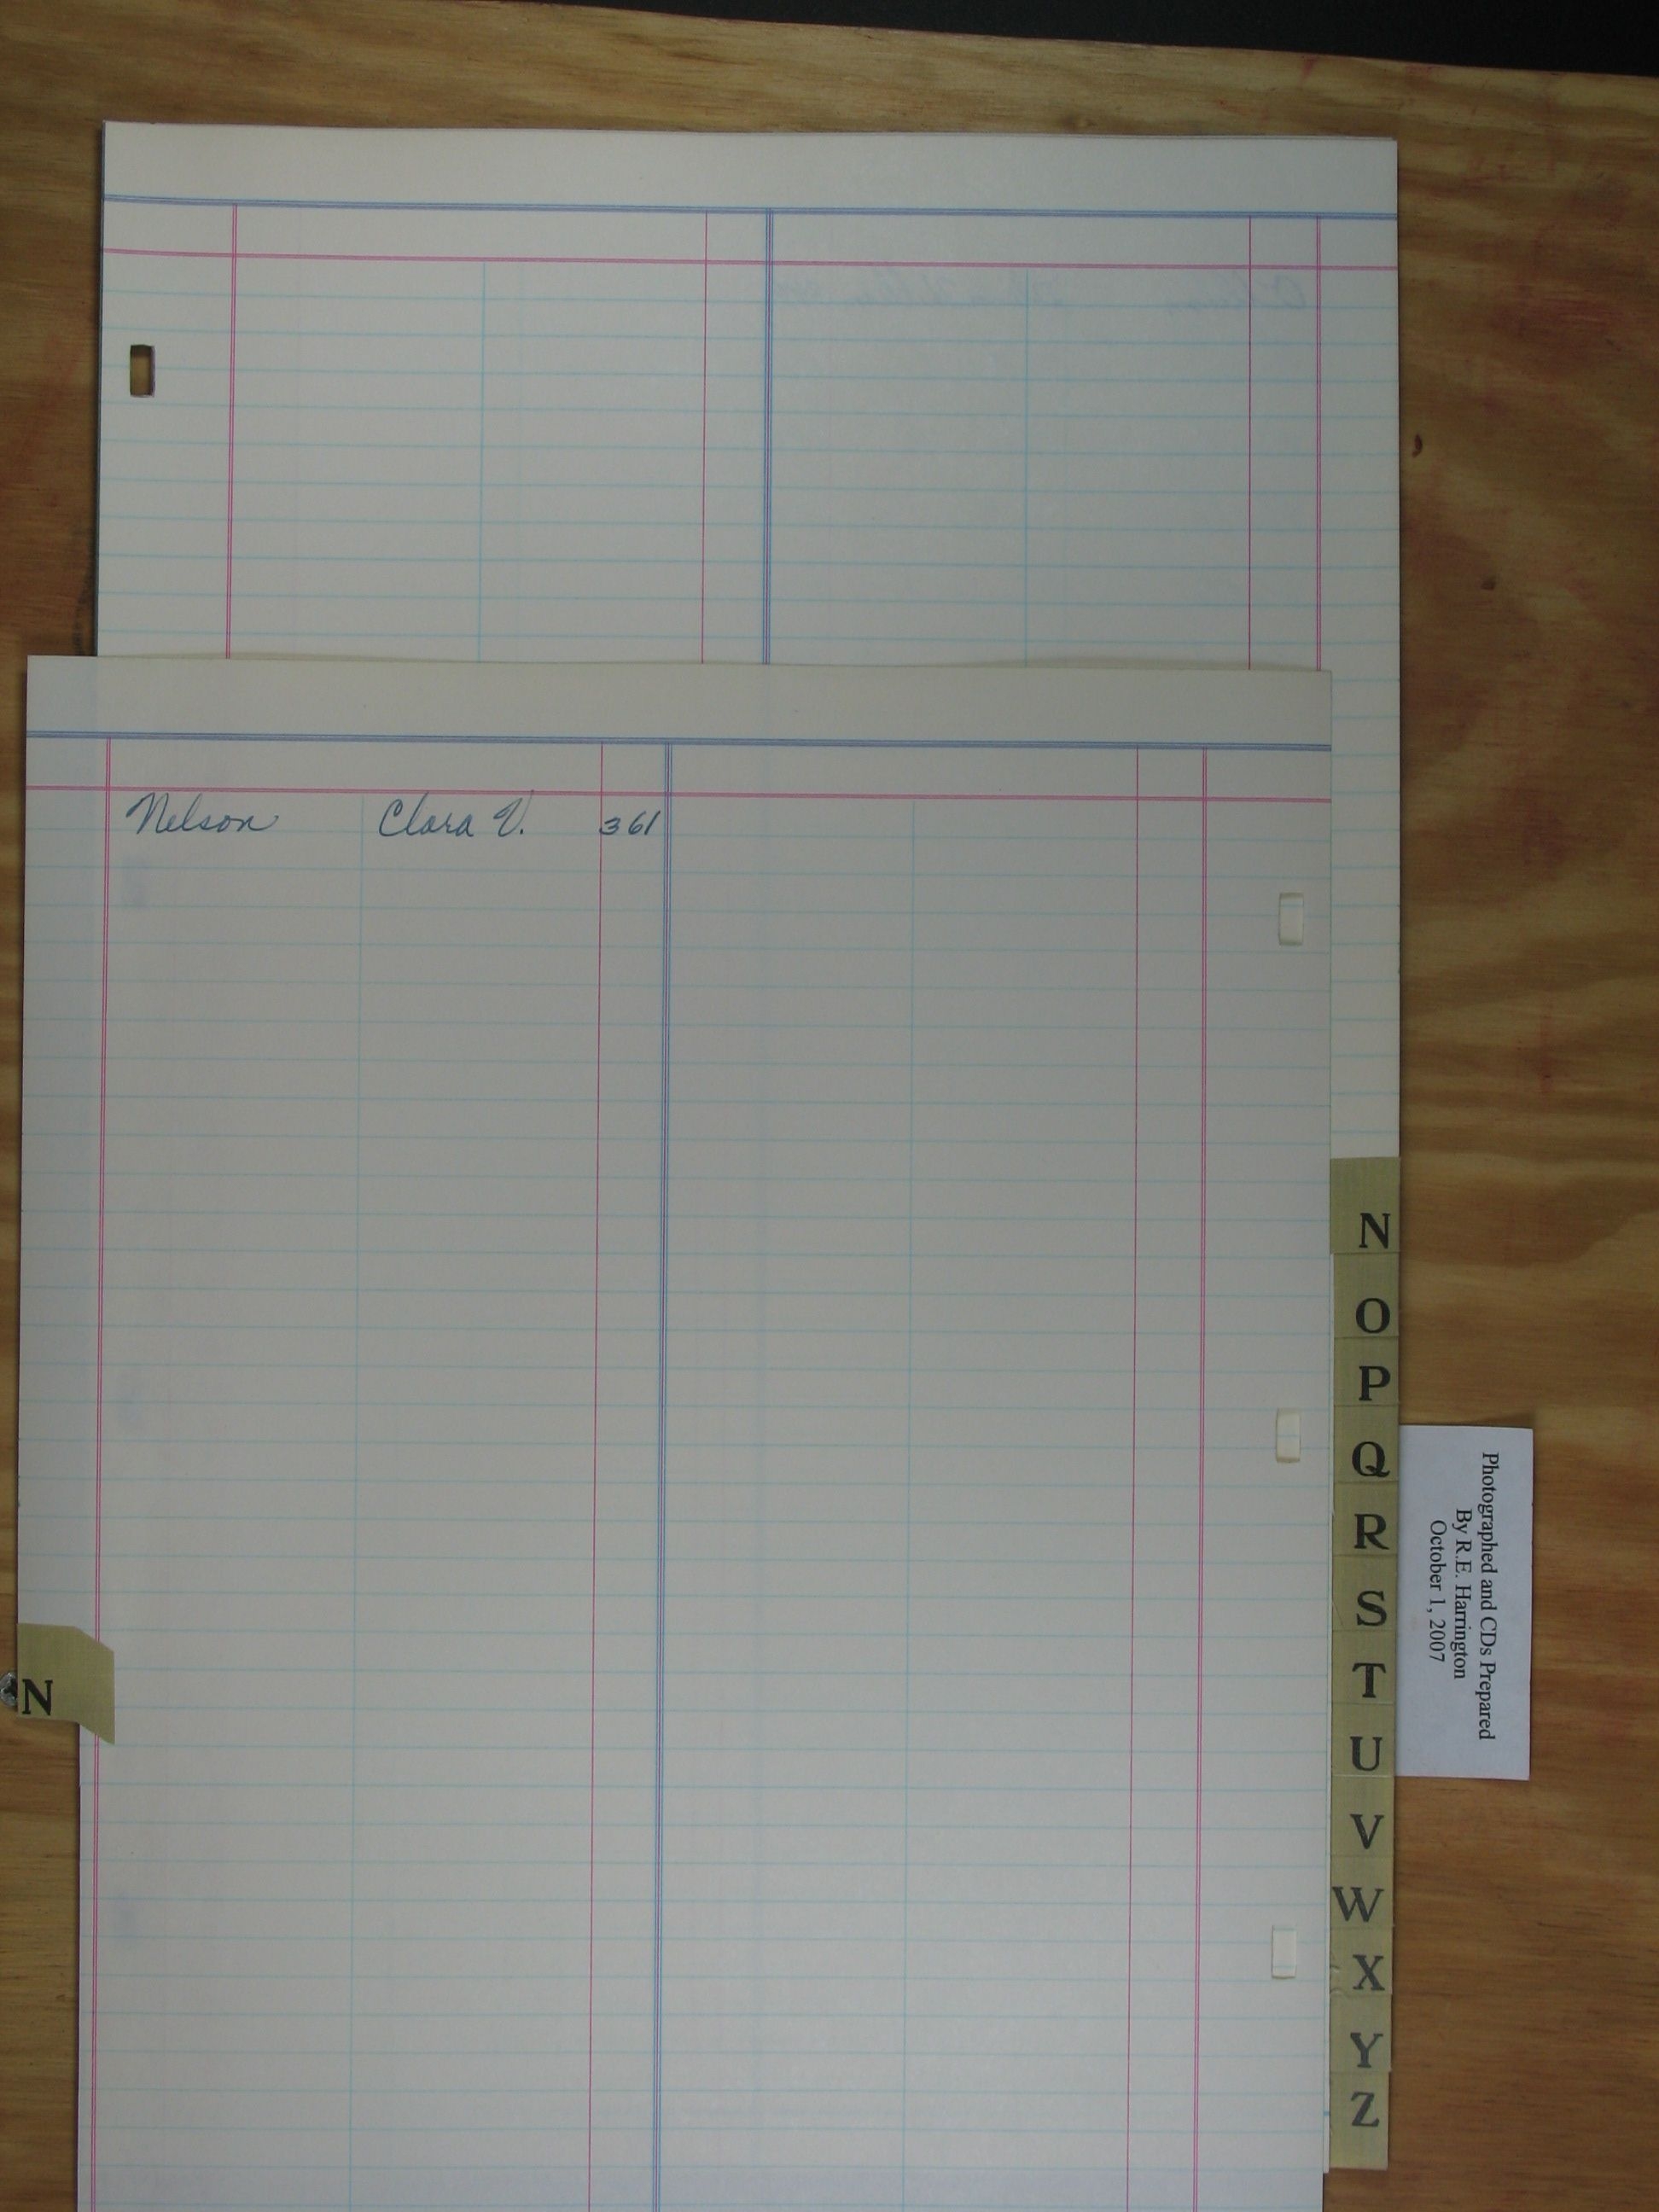 Nelson Clara V. 361
N
N
O
P
Q
R
S
T
U
V
W
X
Y
Z
Photographed and CDs Prepared
By R.E. Harrington
October 1, 2007